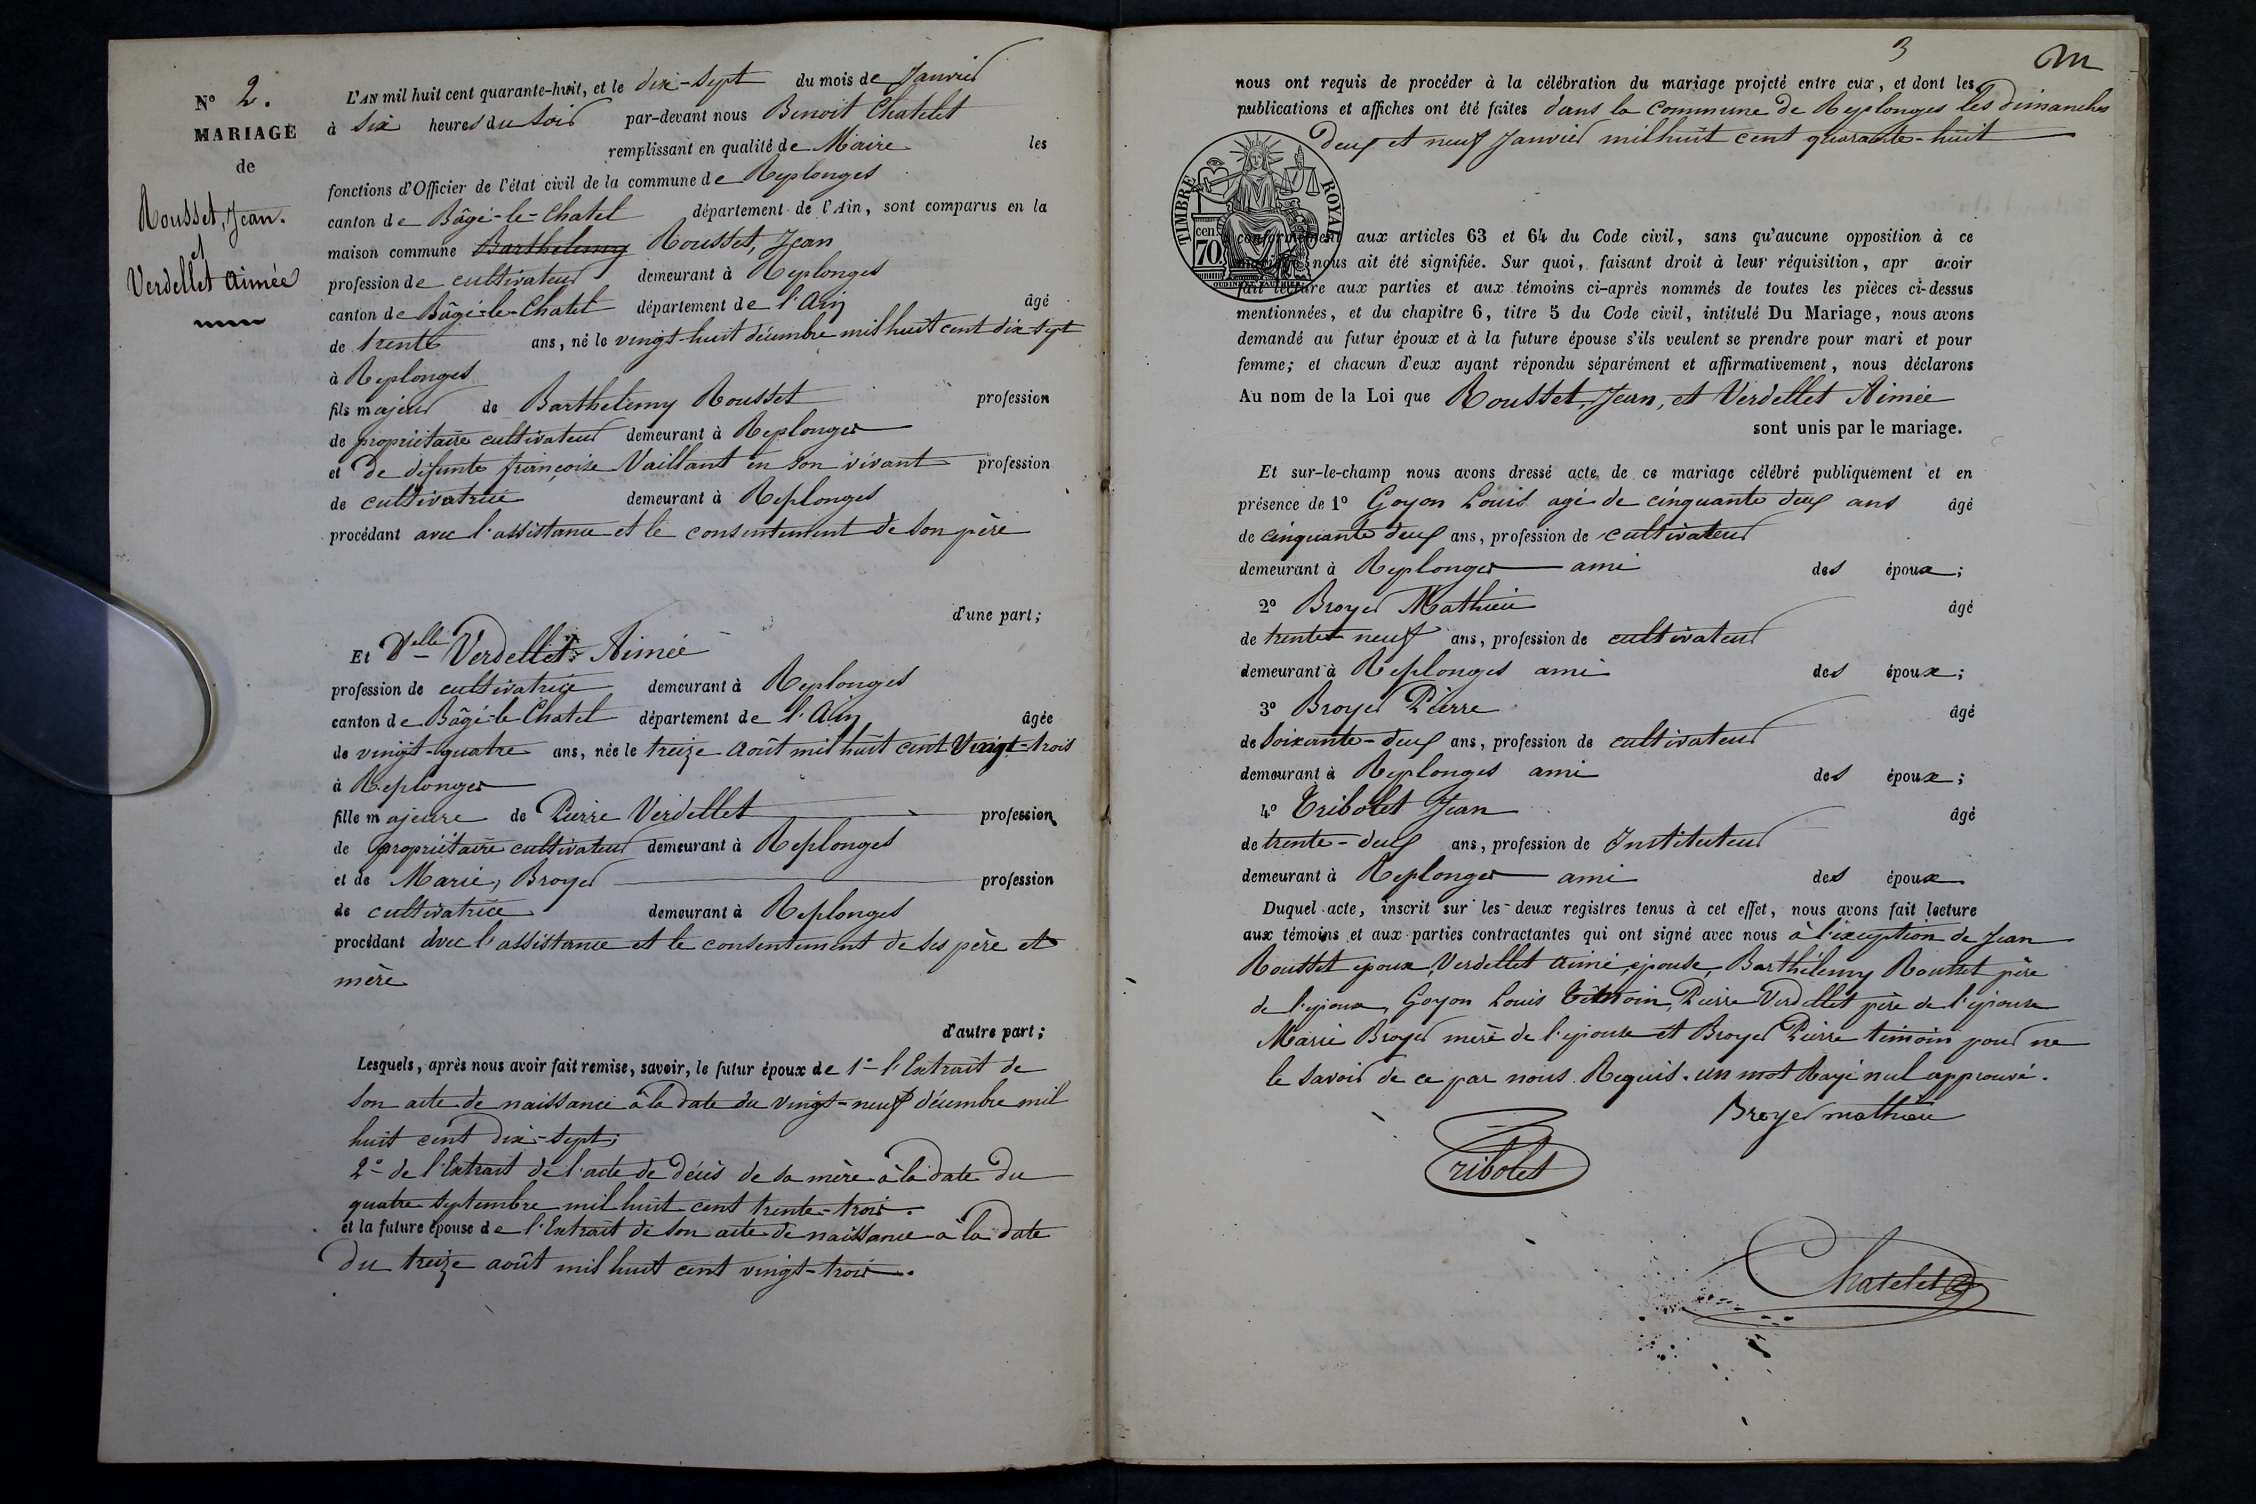 N° 2.
MARIAGE
de
Rousset, Jean.
et
Verdellet Aimée
L'AN mil huit cent quarante-huit, et le dix-sept du mois de Janvier
à Six heures du Soir par-devant nous Benoit Chatelet
remplissant en qualité de Maire les
fonctions d'Officier de l'état civil de la commune de Replonges
canton de Bâgé-le-Chatel département de l'Ain, sont comparus en la
maison commune Barthelemy Rousset, Jean
profession de cultivateur demeurant à Replonges
canton de Bâgé-le-Chatel département de l'Ain âgé
de trente ans, né le vingt-huit décembre mil huit cent dix-sept
à Replonges
fils majeur de Barthelemy Rousset profession
de propriétaire cultivateur demeurant à Replonges
et de défunte françoise Vaillant en son vivant profession
de cultivatrice demeurant à Replonges
procédant avec l'assistance et le consentement de son père
d'une part;
Et Delle Verdellet Aimée
profession de cultivatrice demeurant à Replonges
canton de Bâgé-le-Chatel département de l'Ain âgée
de vingt-quatre ans, née le treize août mil huit cent Vingt-trois
à Replonges
fille majeure de Pierre Verdellet profession
de propriétaire cultivateur demeurant à Replonges
et de Marie, Broyer profession
de cultivatrice demeurant à Replonges
procédant avec l'assistance et le consentement de ses père et
mère
d'autre part;
Lesquels, après nous avoir fait remise, savoir, le futur époux de 1° l'Extrait de
son acte de naissance à la date du vingt-neuf décembre mil
huit cent dix-sept;
2° de l'Extrait de l'acte de décès de sa mère à la date du
quatre septembre mil huit cent trente-trois.
et la future épouse de l'Extrait de son acte de naissance à la date
du treize août mil huit cent vingt-trois.
3
nous ont requis de procéder à la célébration du mariage projeté entre eux, et dont les
publications et affiches ont été faites dans la Commune de Replonges les dimanches
deux et neuf Janvier mil huit cent quarante-huit
TIMBRE ROYAL
70 cen
conformément aux articles 63 et 64 du Code civil, sans qu'aucune opposition à ce
mariage nous ait été signifiée. Sur quoi, faisant droit à leur réquisition, apr avoir
fait lecture aux parties et aux témoins ci-après nommés de toutes les pièces ci-dessus
mentionnées, et du chapitre 6, titre 5 du Code civil, intitulé Du Mariage, nous avons
demandé au futur époux et à la future épouse s'ils veulent se prendre pour mari et pour
femme; et chacun d'eux ayant répondu séparément et affirmativement, nous déclarons
Au nom de la Loi que Rousset, Jean, et Verdellet Aimée
sont unis par le mariage.
Et sur-le-champ nous avons dressé acte de ce mariage célébré publiquement et en
présence de 1° Goyon Louis agé de cinquante deux ans âgé
de cinquante deux ans, profession de cultivateur
demeurant à Replonges ami des époux;
2° Broyer Mathieu âgé
de trente neuf ans, profession de cultivateur
demeurant à Replonges ami des époux;
3° Broyer Pierre âgé
de Soixante-deux ans, profession de cultivateur
demeurant à Replonges ami des époux;
4° Tribolet Jean âgé
de trente-deux ans, profession de Instituteur
demeurant à Replonges ami des époux
Duquel acte, inscrit sur les deux registres tenus à cet effet, nous avons fait lecture
aux témoins et aux parties contractantes qui ont signé avec nous à l'exception de Jean
Rousset époux, Verdellet aimé épouse, Barthélemy Rousset père
de l'époux, Goyon Louis témoin, Pierre Verdellet père de l'épouse
Marie Broyer mère de l'épouse et Broyer Pierre témoin pour ne
le savoir de ce par nous Requis. un mot Rayé nul approuvé.
Broyer mathieu
Tribolet
Chatelet